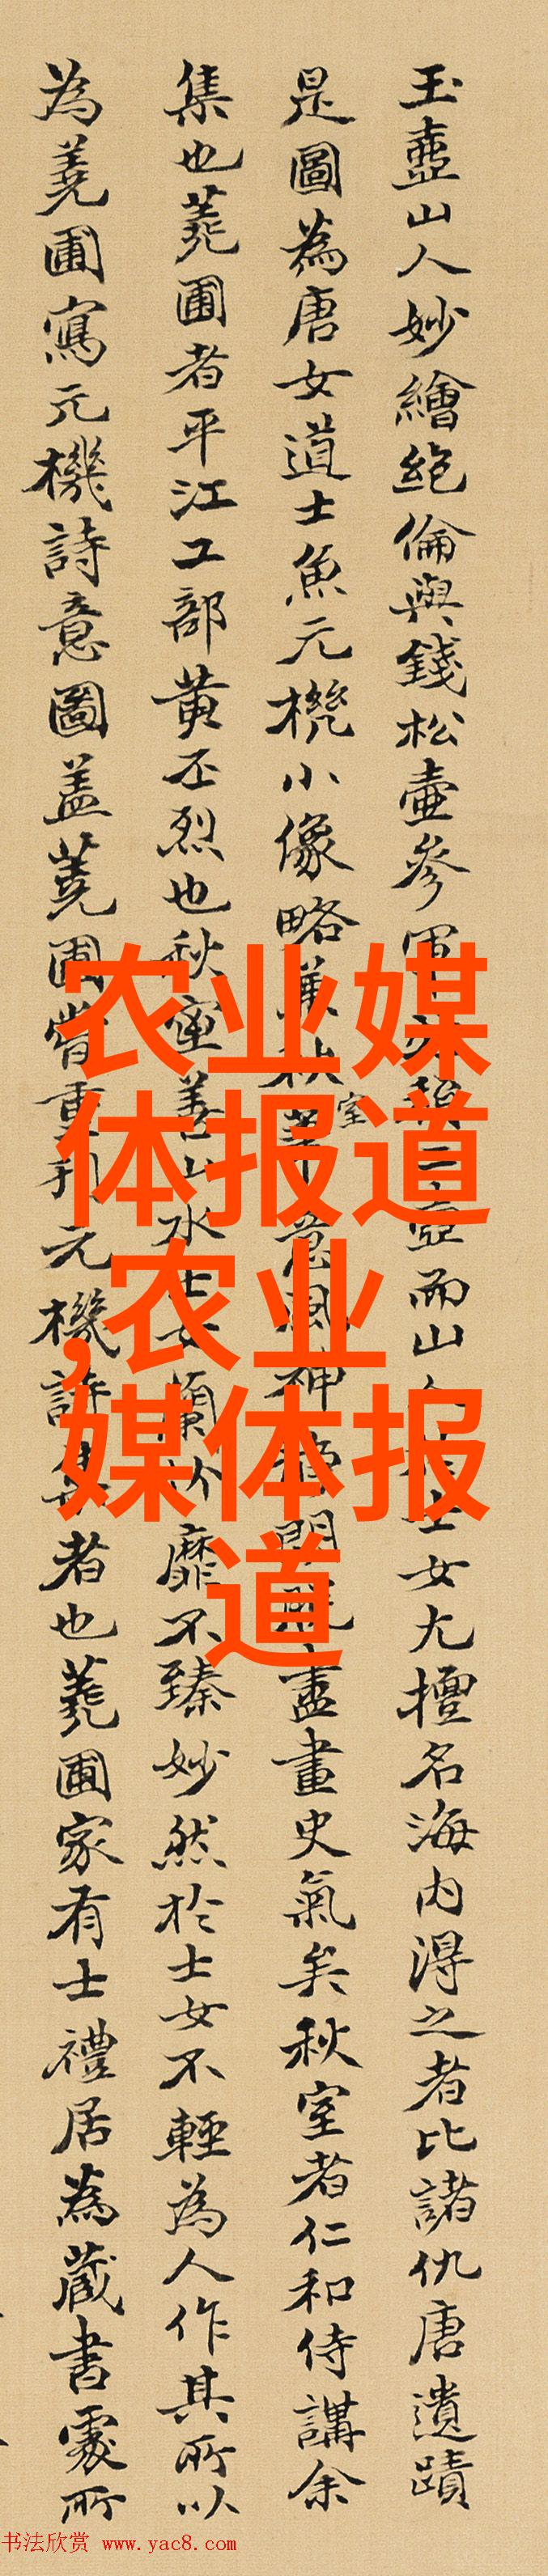 玉壺山人妙繪絕倫與錢松壺參軍二壺而山人士女尤擅名海內得之者比諸仇唐遺蹟
是圖為唐女道士魚元機小像略兼秋室筆意風神盡畫史氣矣秋室者仁和侍講余
集也蕘圃者平江工部黃丕烈也秋室善山水士女蘭竹靡不臻妙然於士女不輕為人作其所以
為蕘圃寫元機詩意圖蓋蕘圃嘗重刊元機詩集者也蕘圃家有士禮居為藏書處所
农业媒
体报道
,农业
媒体报
道
书法欣赏 www.yac8.com